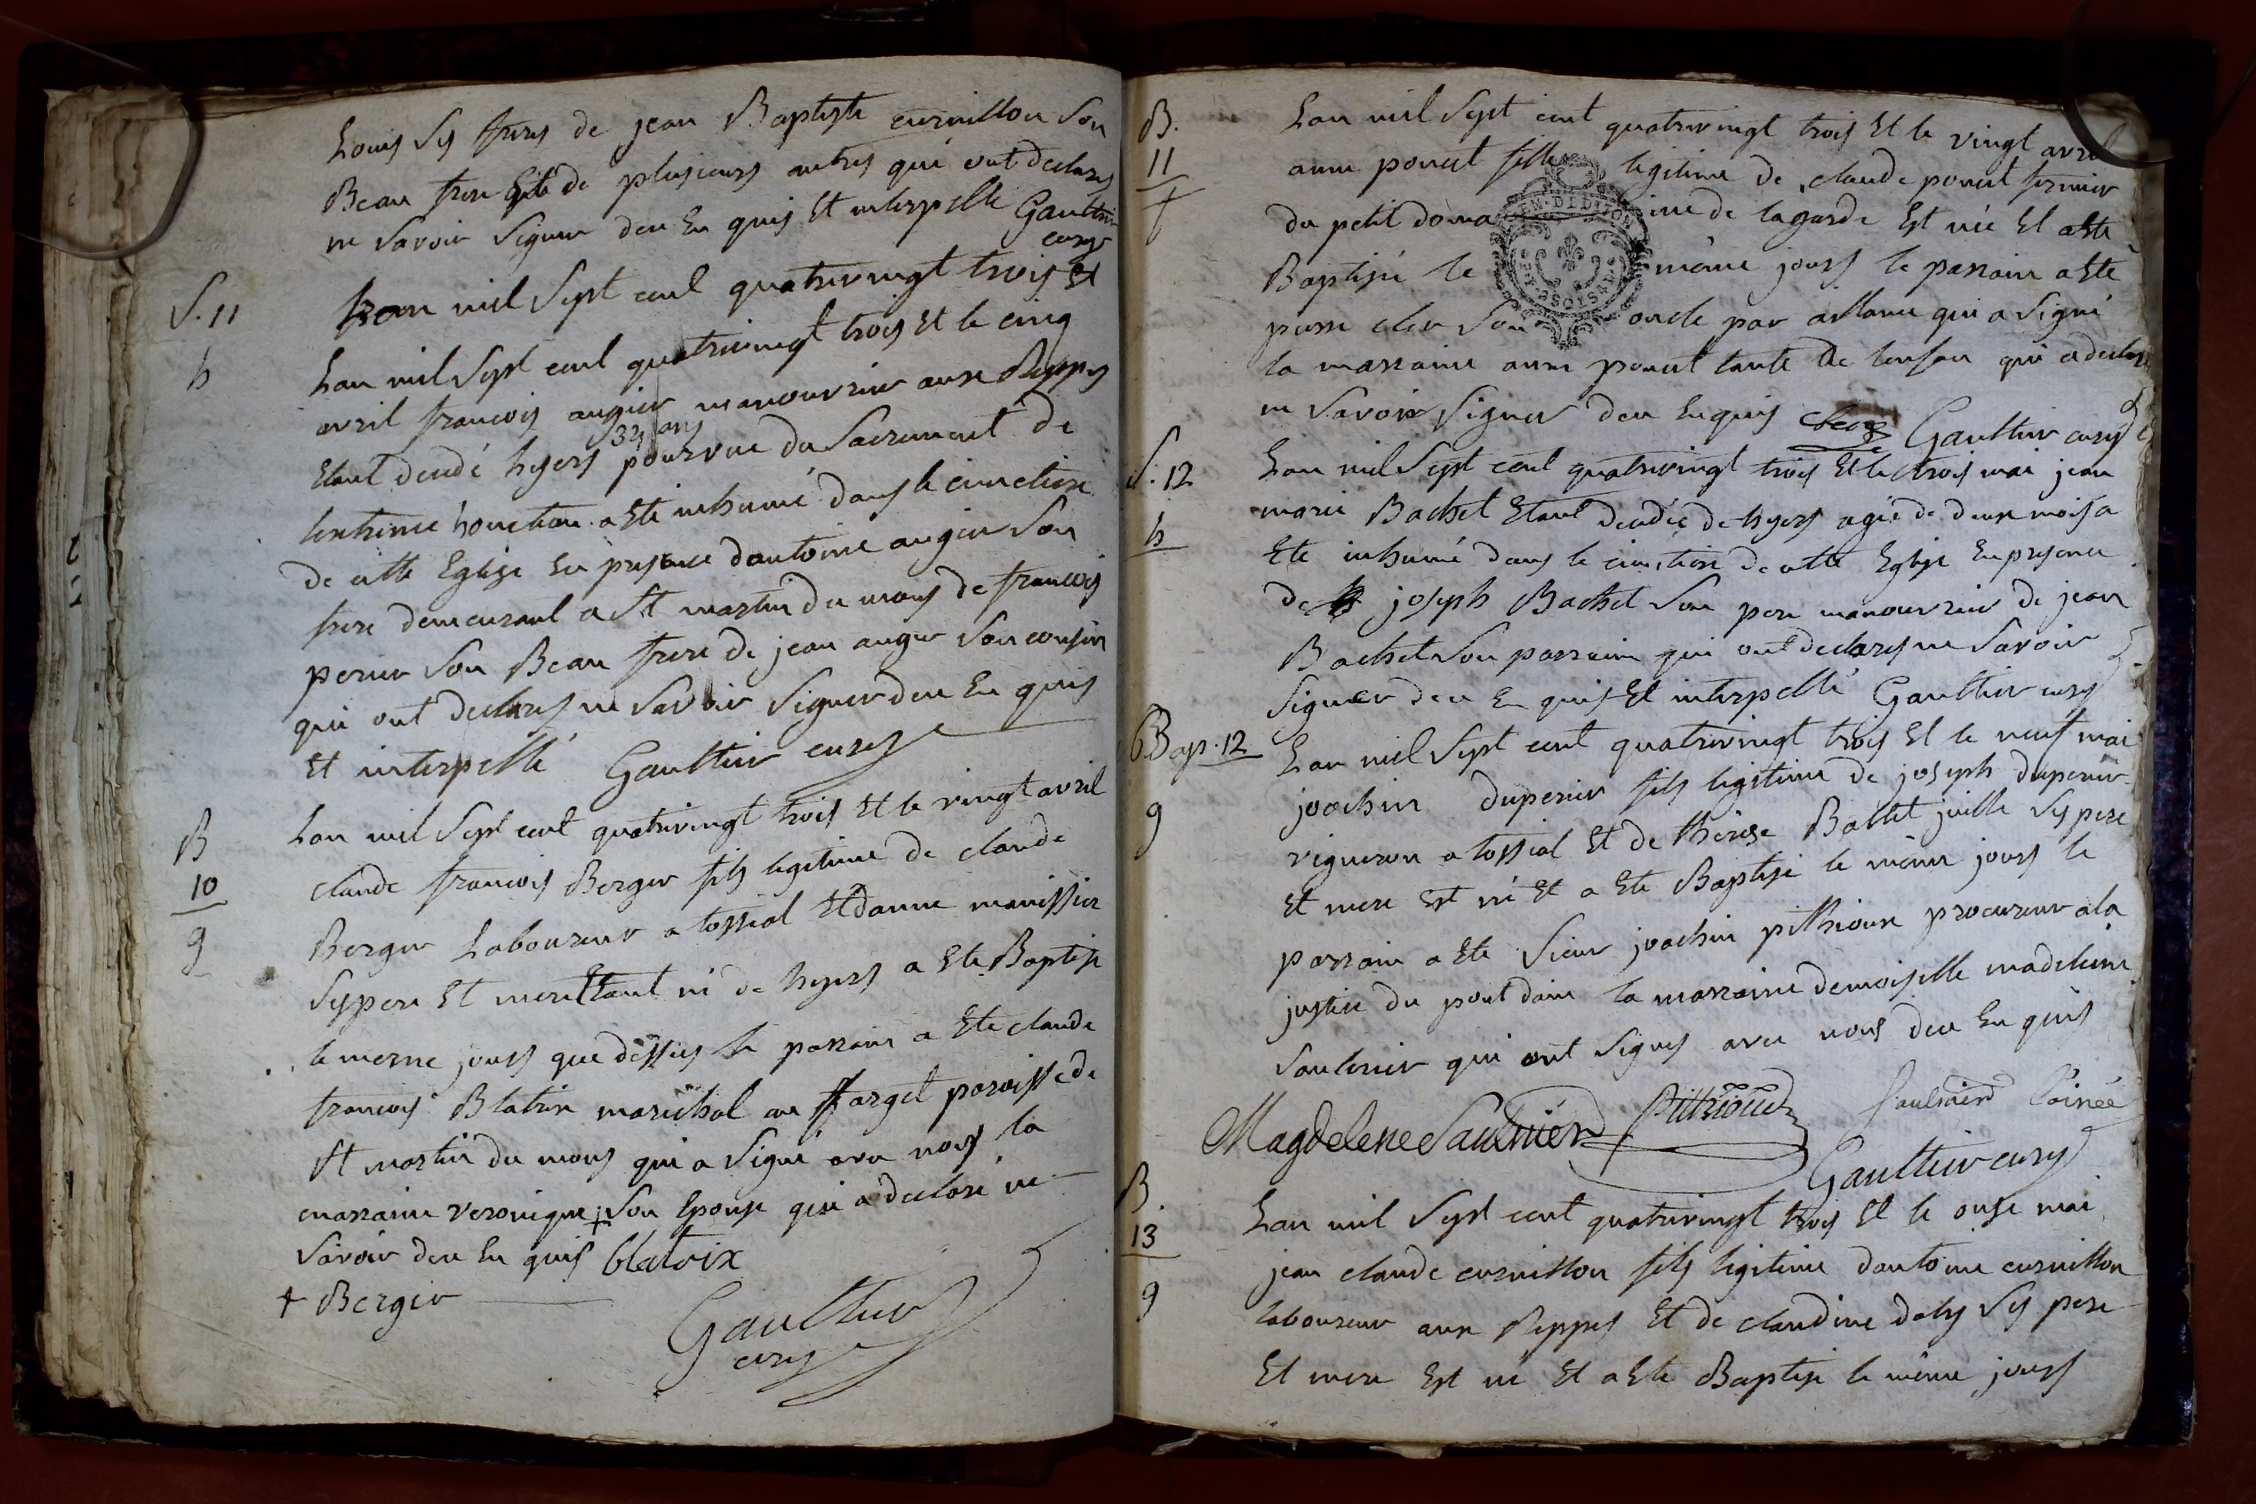 Louis ses freres de jean Baptiste curnillon son
Beau frere et de plusieurs autres qui ont declares
ne savoir signer deu en quis et interpellé Gaultier
curé
S. 11
lan mil sept cent quatrevingt trois et
h
Lan mil sept cent quatrevingt trois et le cinq
avril francois augier manouvrier aux Reppes
etant decudé hyers pourvue du sacrement de
32 ans
lextreme honction a ete inhumé dans le cimetiere
de cette Eglise en presence dantoine augier son
frere demeurant a St martin du mons de francois
perier son Beau frere de jean augier son cousin
qui ont declares ne savoir signer deu en quis
et interpellé Gaultier curé
B
10
g
Lan mil sept cent quatrevingt trois et le vingt avril
claude francois Berger fils legitime de claude
Berger Laboureur a tossiat et danne manissier
ses pere et mere etant né de hyers a ete Baptise
le meme jours que dessus le parrain a ete claude
francois Blatrix marechal au farget paroisse de
St martin du mons qui a signé avec nous la
marraine veronique + son epouse qui a declaré ne
savoir deu en quis blatrix
+ Berger
Gaultier
curé
B.
11
f
Lan mil sept cent quatrevingt trois et le vingt avril
anne poncet fille legitime de claude poncet fermier
du petit domaine de lagarde est née et a ete
GEN. DE DIJON
Baptisée le même jours le parrain a ete
pierre cler son oncle par aillance qui a signé
la marraine anne poncet tante de lenfan qui a declaré
ne savoir signer deu enquis clerc Gaultier curé
S. 12
h
Lan mil sept cent quatrevingt trois et le trois mai jean
marie Bachet etant decudée de hyers agée de deux mois a
ete inhumé dans le cimetiere de cette Eglise en presence
de joseph Bachet son pere manouvrier de jean
Bachet son parrain qui ont declares ne savoir
signer deu en quis et interpellé Gaultier curé
Bap. 12
g
Lan mil sept cent quatrevingt trois et le neuf mai
joachim duperier fils legitime de joseph duperier
vigneron a tossiat et de therese Battet juille ses pere
et mere est né et a ete Baptise le même jours le
parrain a ete sieur joachim pithioux procureur a la
justice du pont dain la marraine demoiselle madeleine
saulnier qui ont signes avec nous deu en quis
Magdelene Saulnier Pithioud saulnier l'ainée
Gaultier curé
B.
13
g
Lan mil sept cent quatrevingt trois et le onse mai
jean claude curnillon fils legitime dantoine curnillon
laboureur aux Reppes et de claudine daly ses pere
et mere est né et a ete Baptise le même jours